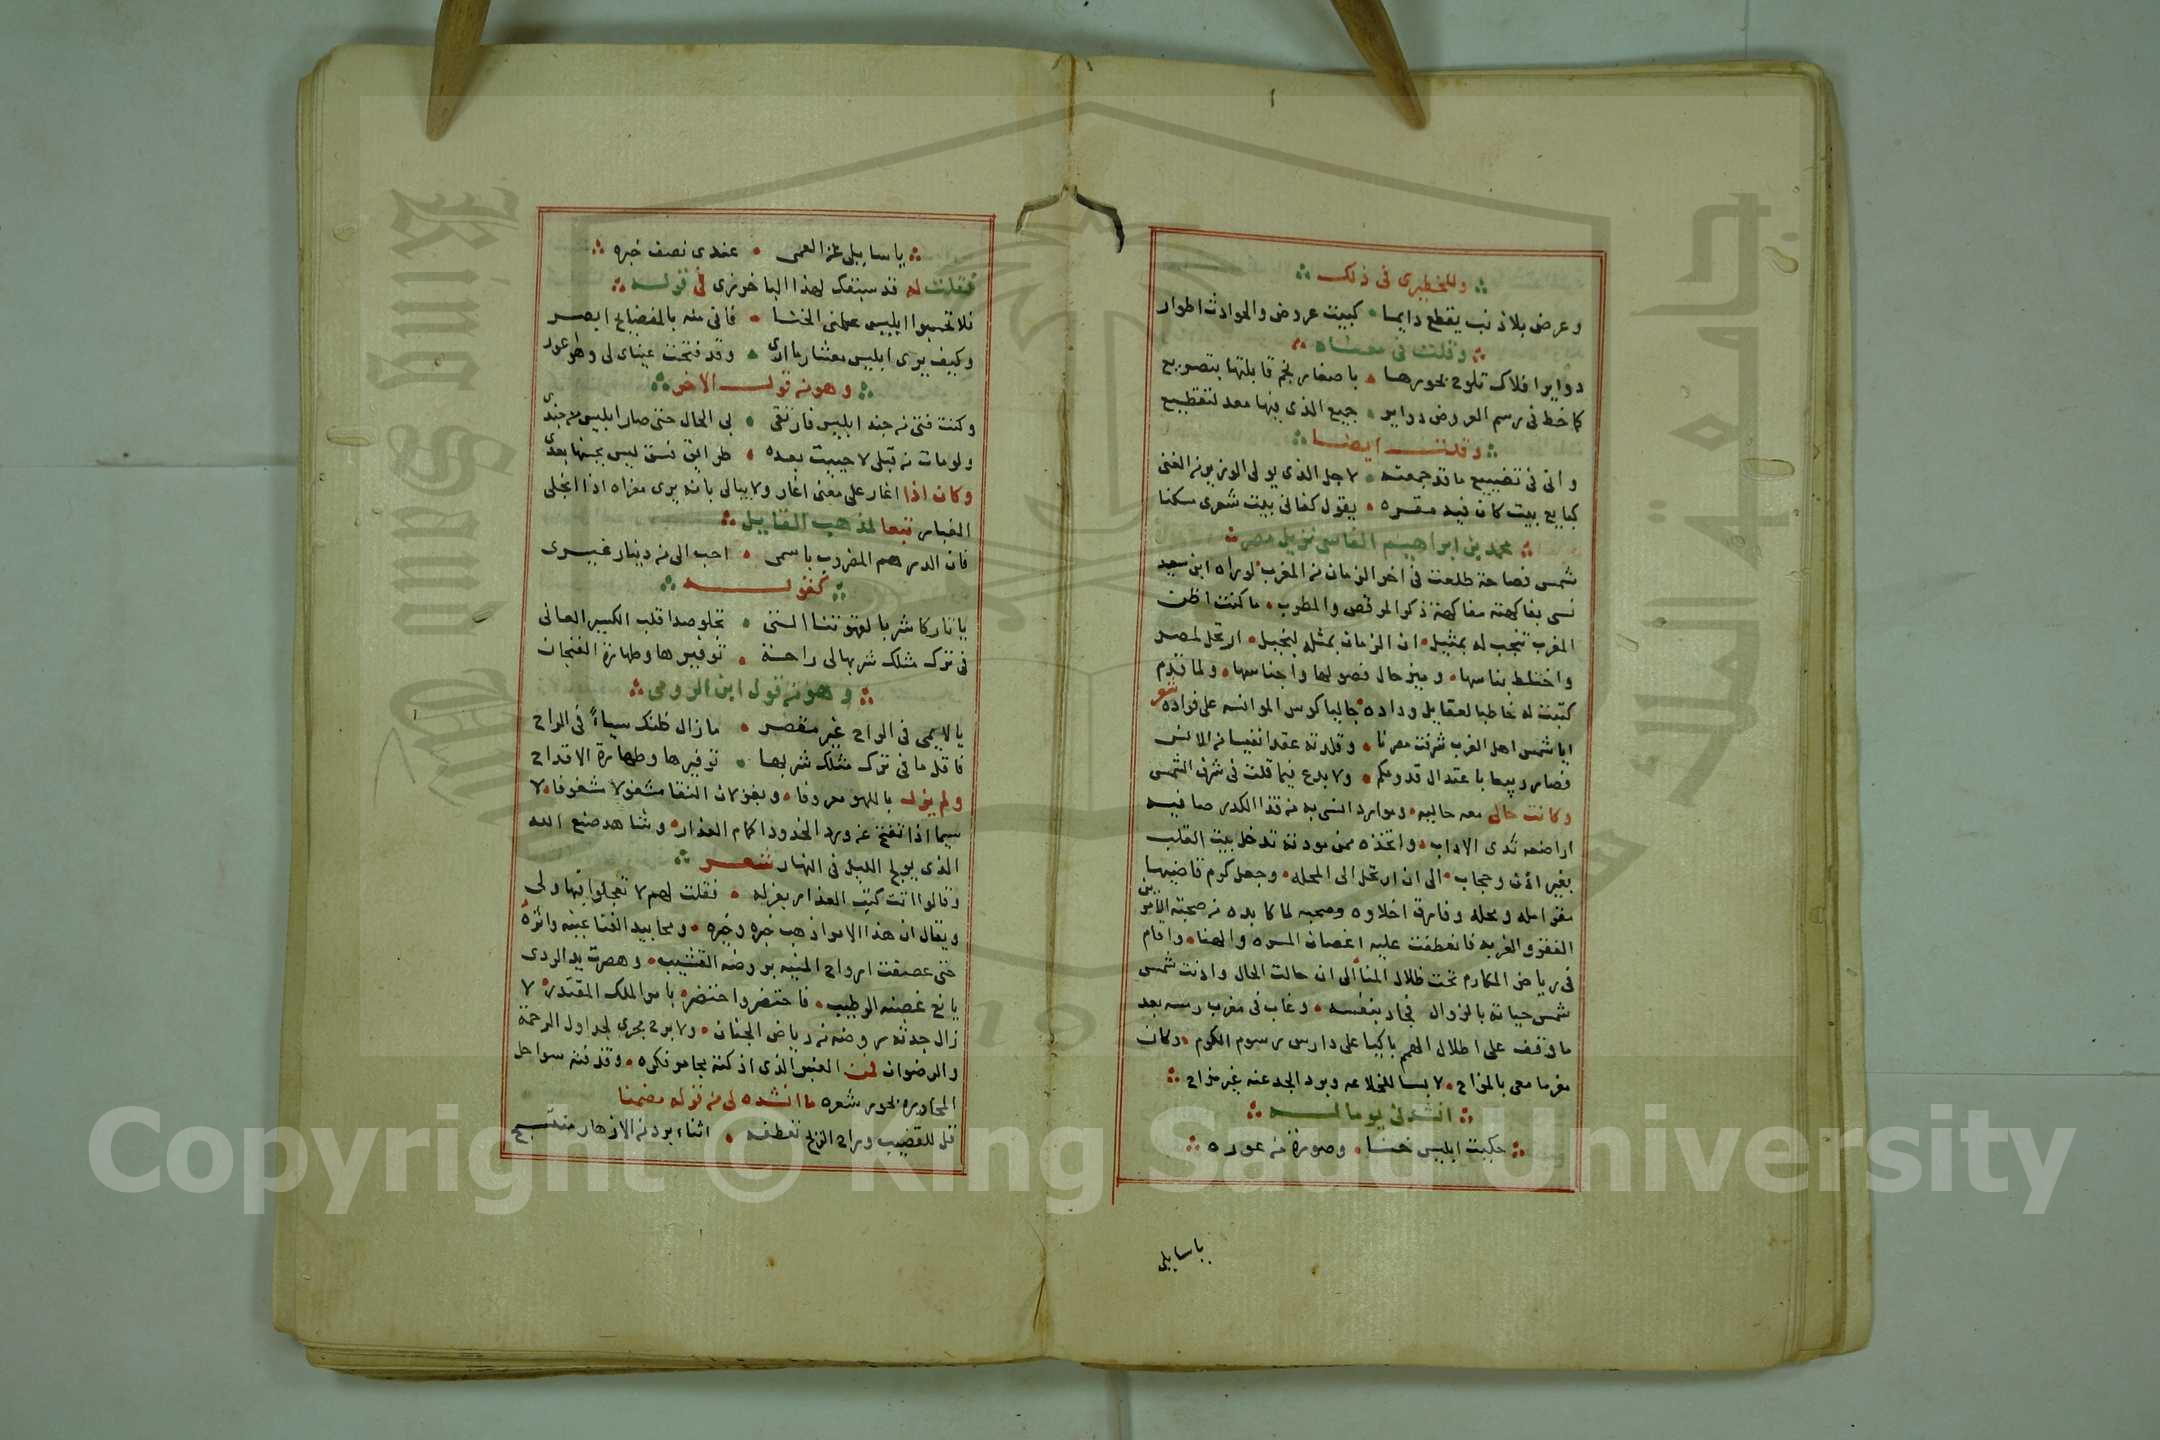 وللخطيرى فى ذلك
وعرض بلا ذنب يقطع دايما كبيت عروض والحوادث اطوار
وقلت فى معناه
دوايرا فلاك تلوح بحورها باصفار نجم قابلتها بتصريع
كما خط فى رسم العروض دواير جميع الذى فيها معد لتقطيع
وقلت ايضا
وانى فى تضييع ما قد جمعته لاجل الذى يولى الوزير من الغنى
كبايع بيت كان فيه مقره يقول كفانى بيت شعرى مسكنا
محمد بن ابراهيم الفاسى نزيل مصر
شمس فصاحة طلعت فى اخر الزمان من المغرب لوراه ابن سعيد
نسى بفاكهته مفاكهة ذكر المرقص والمطرب ما كنت اظن
المغرب تنجب له بمثيل ان الزمان بمثله لبخيل ارتحل لمصر
واختلط بناسها وميز حال فصولها واجناسها ولما قدم
كتبت له خاطبا لعقايل وداده جاليا كوس الموانسه على فواده شعر
ايا شمس اهل الغرب شرفت مصرنا وقلدته عقدا نفيسا من الانس
فصار ربيعا باعتدال قدومكم ولا بدع فيما قلت فى شرف الشمس
وكانت حالى معه حاليه وموارد انسى به من قذا الكدر صافيه
اراضعه ثدى الاداب واتخذه ممن مودته تدخل بيت القلب
بغير اذن وحجاب الى ان ارتحل الى المحله وجعل كرم قاضيها
مقر امله ومحله وفارق اخلاوه وصحبه لما كابده من صحبة الامرين
الفقر والغربه فانعطفت عليه اغصان المسره والهنا واقام
فى رياض المكارم تحت ظلال المنا الى ان حالت الحال واذنت شمس
شمس حياته بالزوال فجاد بنفسه وغاب فى مغرب رمسه بعد
ما وقف على اطلال الهمم باكيا على دارس رسوم الكرم وكان
مغرما معى بالمزاح لابسا للخلاعه وبرد الجد عنه غير مزاح
انشدنى يوما له
حكيت ابليس خسا وصورة من عوره
يا سايلى
يا سايلى عن العمى عندى نصف خبره
فقلت له قد سبقك لهذا الباخرزى فى قوله
فلا تحسبوا ابليس علمنى الخنا فانى منه بالفضايح ابصر
وكيف يرى ابليس معشار ما ارى وقد فتحت عيناى لى وهو اعور
وهو من قول الاخر
وكنت فتى من جند ابليس فارتقى بى الحال حتى صار ابليس من جندى
ولو مات من قبلى لاحييت بعده طرايق فسق ليس يحسنها بعدى
وكان اذا اغار على معنى اغار ولا يبالى بانه يرى مغزاه اذا انجلى
الغبار تبعا لمذهب القايل
فان الدرهم المضروب باسمى احب الى من دينار غيرى
كقوله
يا تاركا شربا لقهوتنا التى تجلو صدا قلب الكيير العانى
فى ترك مثلك شربها لى راحة توفيرها وطهارة الفنجان
وهو من قول ابن الرومى
يا لايمى فى الراح غير مقصر ما زال ظنك سياً فى الراح
فاقل ما فى ترك مثلك شربها توفيرها وطهارة الاقداح
ولم يزل باللهو معروفا وبغزلان النقا مشغولا مشغوفا لا
سيما اذا تفتح عن ورد الخدود اكمام العذار وشاهد صنع الله
الذى يولج الليل فى النهار شعر
وقالوا اتت كتب العذار بعزله فقلت لهم لا تعجلوا انها ولى
ويقال ان هذا الامر اذهب خبره وخبره ومحا بيد الفنا عينه واثره
حتى عصفت ارواح المنيه بروضه القشيب وهصرت يد الردى
يانع غصنه الرطيب فاحتضر واختضر بامر الملك المقتدر لا
زال جدثه روضة من رياض الجنان ولا برح مجرى لجداول الرحمة
والرضوان فمن العنبر الذى اذكته مجامر فكره وقذفته سواحل
المحاوره بحور شعره ما انشده لى من قوله مضمنا
قل للقضيب وراح الريح تعطفه اثناء برد من الازهار منتسج